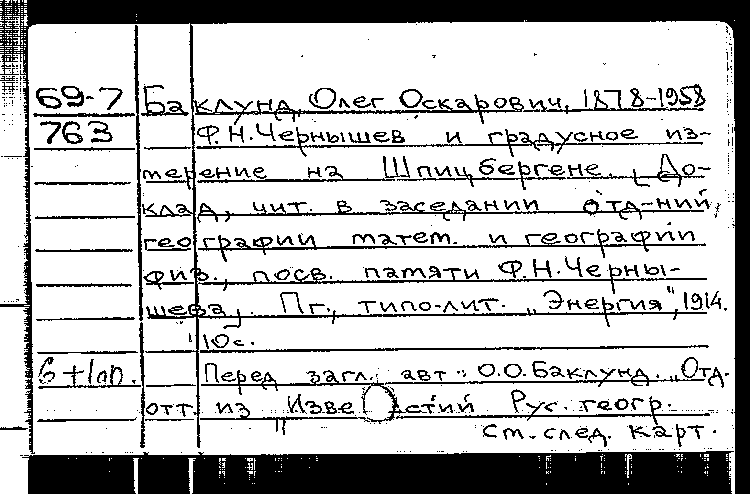 69-7 Баклунд, Олег Оскарович, 1878-1958
763 Ф.Н.Чернышев и градусное из-
мерение на Шпицбергене. [До-
клад, чит. в заседании отд-ний
географии матем. и географии
физ., посв. памяти Ф.Н.Черны-
шева]. Пг., типо-лит. "Энергия", 1914.
10 с.
Перед загл. авт.: О.О.Баклунд. "Отд.
отт. из "Известий Рус. геогр.
См. след. карт.